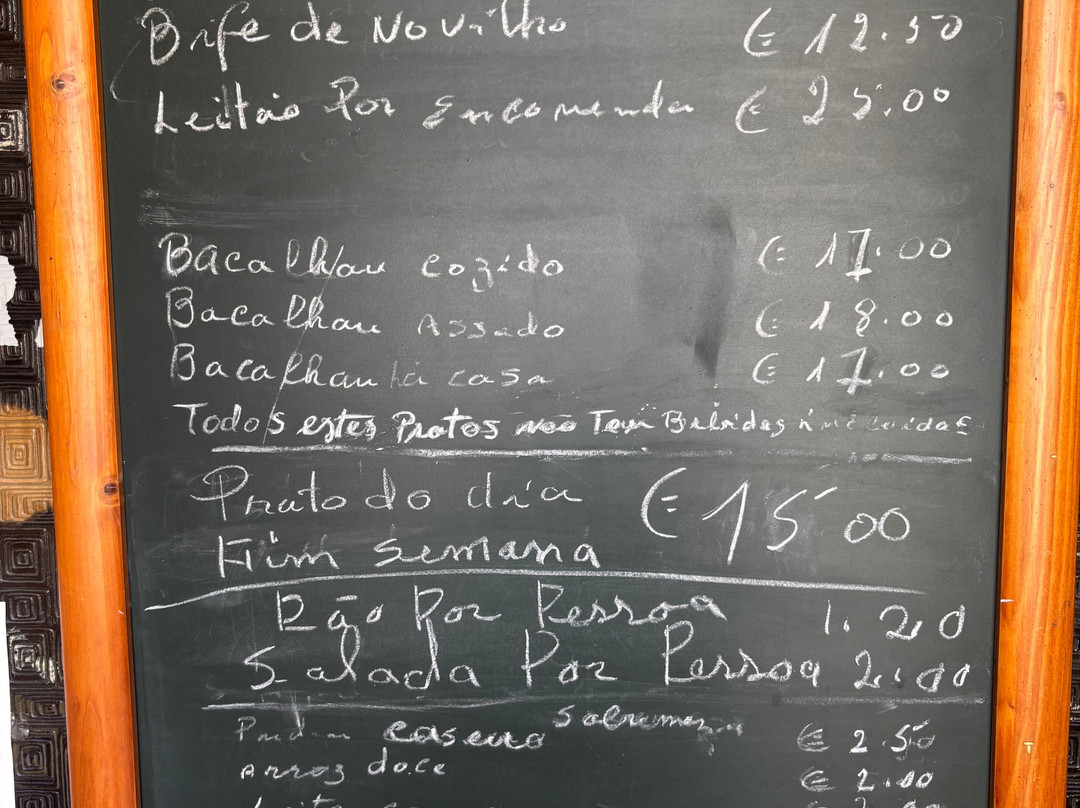 Bife de Novilho € 12.50
Leitão Por Encomenda € 25.00
Bacalhau cozido € 17.00
Bacalhau Assado € 18.00
Bacalhau há casa € 17.00
Todos estes Pratos não Tem Bebidas incluidas
Prato do dia € 15 00
Fim semana
Pão Por Pessoa 1.20
Salada Por Pessoa 2.00
Sobremeza
Pudim caseiro € 2.50
Arroz doce € 2.00